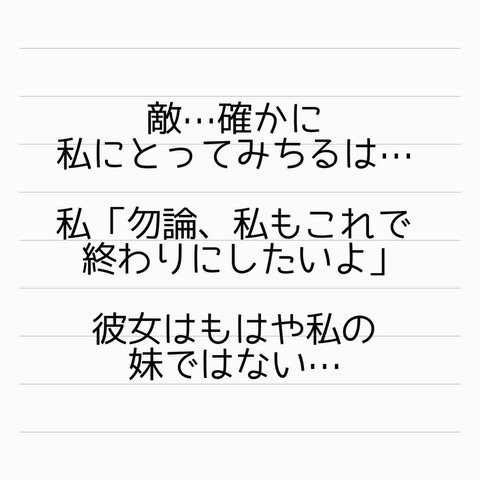 敵…確かに
私にとってみちるは…
私「勿論、私もこれで
終わりにしたいよ」
彼女はもはや私の
妹ではない…